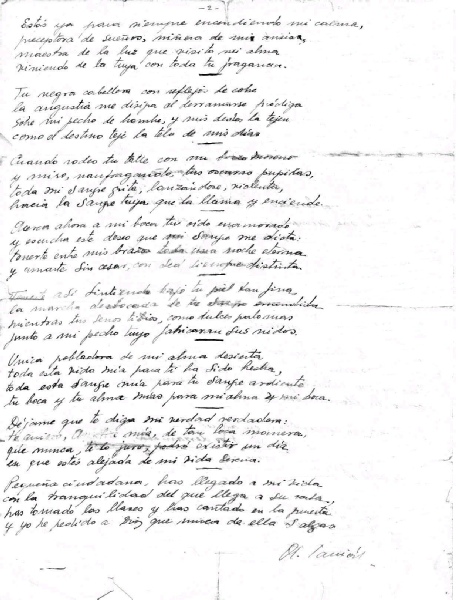 - 2 -
Estás ya para siempre encendiendo mi calma,
preceptora de sueños, minera de mis ansias,
maestra de la luz que visitó mi alma
viniendo de la tuya con toda tu fragancia.
Tu negra cabellera con reflejos de cobre
la angustia me disipa al derramarse pródiga
sobre mi pecho de hombre, y mis dedos la tejen
como el destino teje la tela de mis días
Cuando rodeo tu talle con mi brazo moreno
y miro, naufragando, tus oscuras pupilas,
toda mi sangre grita, lanzándose, violenta,
hacia la sangre tuya que la llama y enciende.
Acerca ahora a mi boca tu oído enamorado
y escucha este deseo que mi sangre me dicta:
tenerte entre mis brazos toda una noche eterna
y amarte sin cesar, con sed siempre distinta.
Tenerte así sintiendo bajo tu piel tan fina,
la marcha de tu sangre encendida
mientras tus senos tibios, como dulces palomas
junto a mi pecho tuyo fabricaran sus nidos.
Unica pobladora de mi alma desierta
toda esta vida mía para ti ha sido hecha,
toda esta sangre mía para tu sangre ardiente
tu boca y tu alma mías para mi alma y mi boca.
Déjame que te diga mi verdad verdadera:
te quiero, mía, de tan loca manera,
que nunca, te lo juro, podrá existir un día
en que estés alejada de mi vida serena.
Pequeña ciudadana, has llegado a mi vida
con la tranquilidad del que llega a su casa,
has tomado las llaves y has cantado en la puerta
y yo he pedido a Dios que nunca de ella salgas